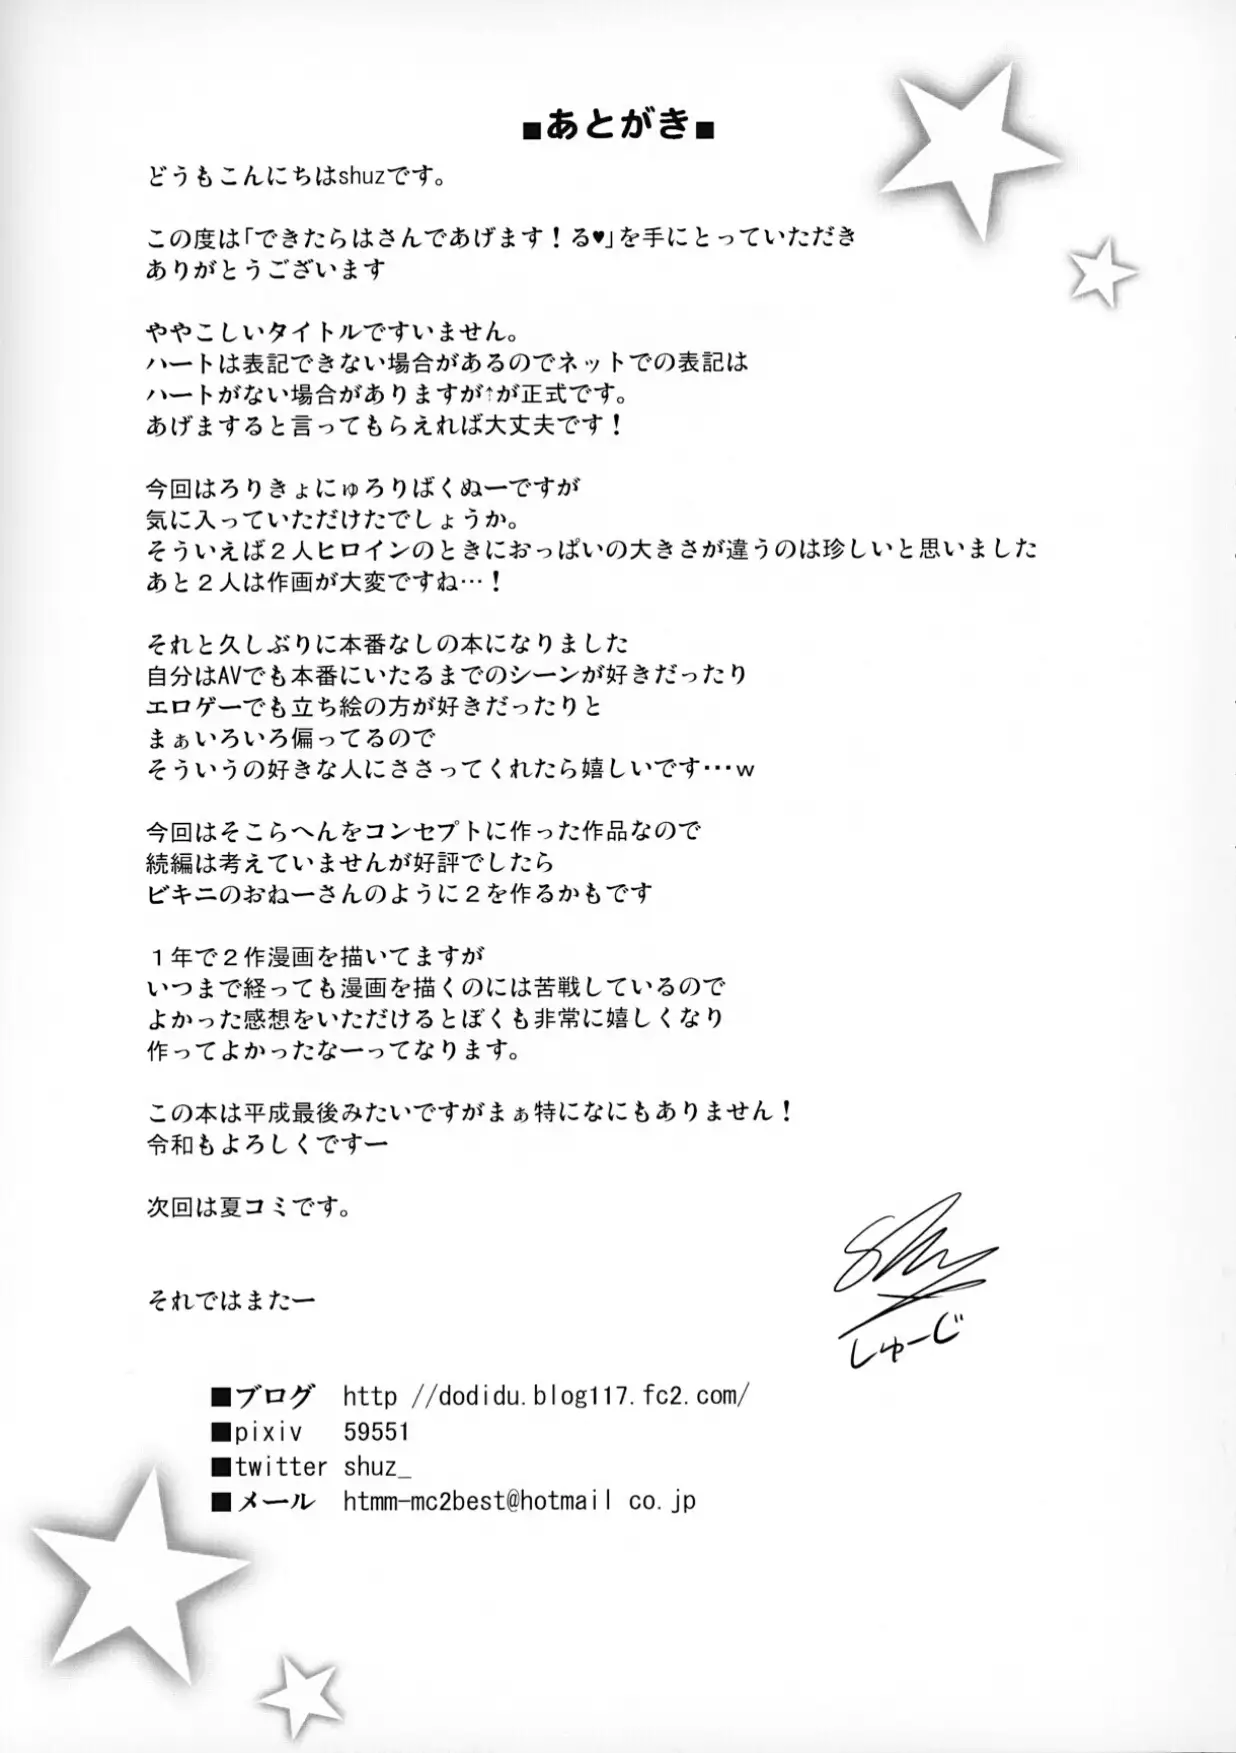 ■あとがき■
どうもこんにちはshuzです。
この度は「できたらはさんであげます！る♥」を手にとっていただき
ありがとうございます
ややこしいタイトルですいません。
ハートは表記できない場合があるのでネットでの表記は
ハートがない場合がありますが↑が正式です。
あげまするると言ってもらえれば大丈夫です！
今回はろりきょにゅろりばくぬーですが
気に入っていただけたでしょうか。
そういえば２人ヒロインのときにおっぱいの大きさが違うのは珍しいと思いました
あと２人は作画が大変ですね…！
それと久しぶりに本番なしの本になりました
自分はAVでも本番にいたるまでのシーンが好きだったり
エロゲーでも立ち絵の方が好きだったりと
まぁいろいろ偏ってるので
そういうの好きな人にささってくれたら嬉しいです…ｗ
今回はそこらへんをコンセプトに作った作品なので
続編は考えていませんが好評でしたら
ビキニのおねーさんのように２を作るかもです
１年で２作漫画を描いてますが
いつまで経っても漫画を描くのには苦戦しているので
よかった感想をいただけるとぼくも非常に嬉しくなり
作ってよかったなーってなります。
この本は平成最後みたいですがまぁ特になにもありません！
令和もよろしくですー
次回は夏コミです。
それではまたー
shu
しゅーじ
■ブログ http //dodidu.blog117.fc2.com/
■pixiv 59551
■twitter shuz_
■メール htmm-mc2best@hotmail co.jp